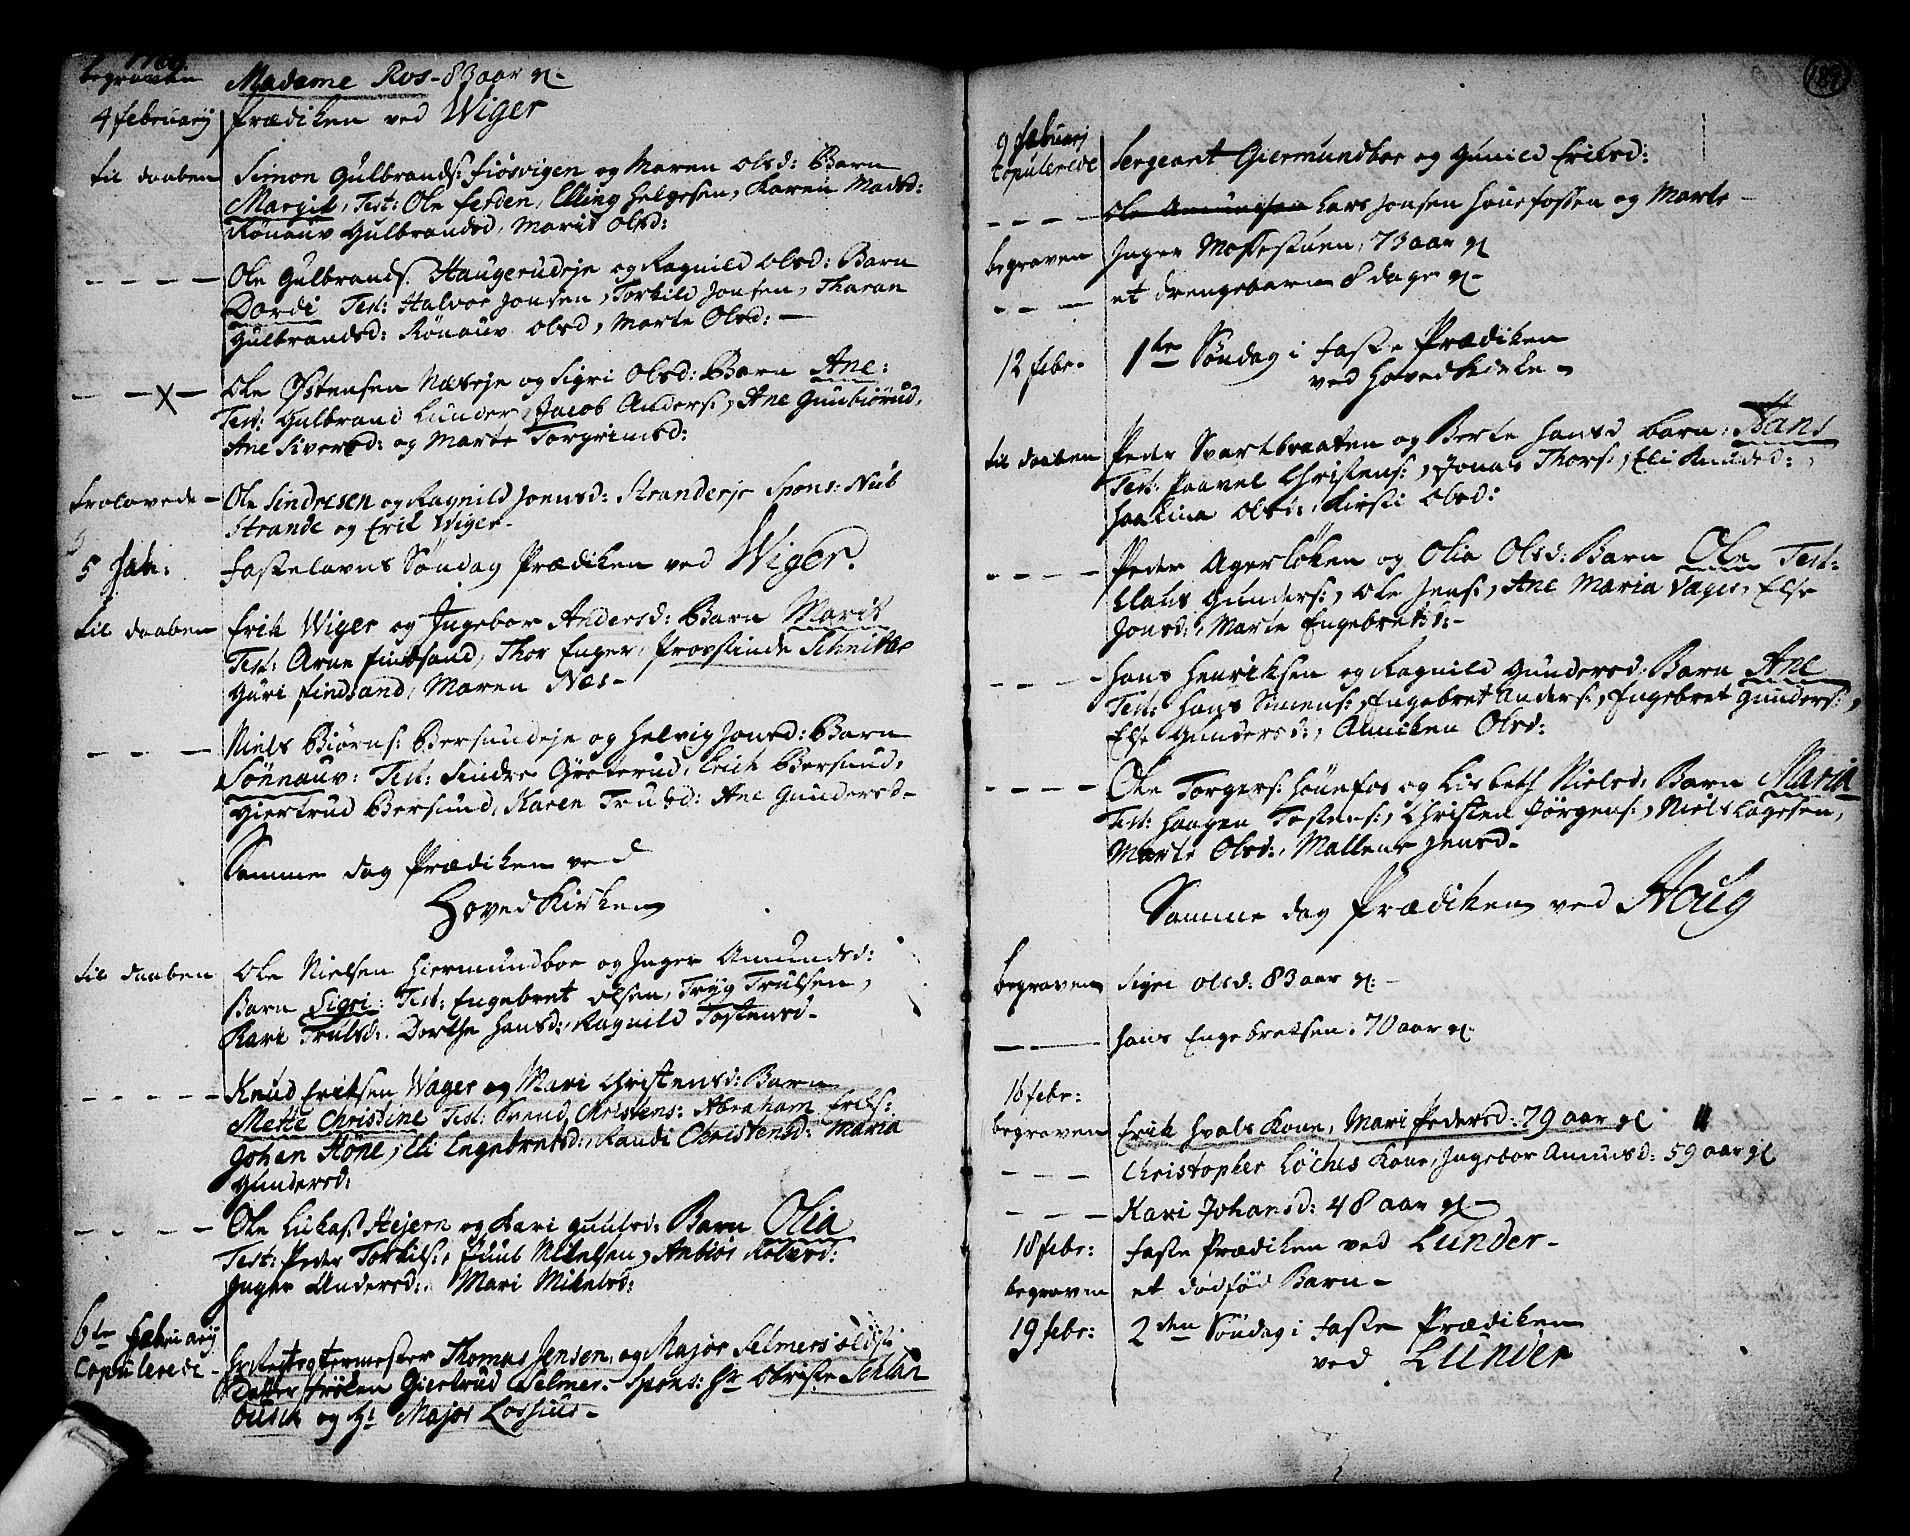 begraven Madame Ros - 83 aar gl.
4 februarij Prædiken ved Wiger
til daaben Simon Gulbrands: fiøsvigen og Maren Olsd: Barn
Margit, Test: Ole ferden, Elling Helgesen, Karen Madsd:
Rønauv Gulbrandsd, Marit Olsd:
---- Ole Gulbrands. Haugerudeje og Ragnild Olsd: Barn
Dordi Test: Halvor Jonsen, Torkild Jonsen, Tharan
Gulbrandsd: Rønauv Olsd, Marte Olsd: -
--x- Ole Østensen Næseje og Sigri Olsd: Barn Ane:
Test: Gulbrand Lunder, Jacob Anders:, Ane Gunbiørud,
Ane Siversd: og Marte Torgrimsd:
trolovede - Ole Sindresen og Ragnild Joensd: Stranderje Spons: Nub
Strande og Erik Wiger -
5 feb: fastelavns Søndag Prædiken ved Wiger.
til daaben Erik Wiger og Ingebor Andersd: Barn Marit
Test: Arne findsand, Thor Enger, Provstinde Schnitler
Guri findsand, Maren Næs -
--- Niels Biørns: Bersundeje og Helvig Jonsd: Barn
Sønnauv: Test: Sindre Grøterud, Erich Bersund,
Giertrud Bersund, Karen Trulsd: Ane Gundersd -
Samme dag Prædiken ved
Hovedkirken
til daaben Ole Nielsen Giermundboe og Inger Amundsd:
Barn Sigri: Test: Engebret Olsen, Tryg Trulsen,
Kari Trulsd:, Dorthe Hansd:, Ragnild Tostensd -
----- Knud Eriksen Wager og Mari Christensd: Barn
Mette Christine Test: Svend Christens: Abraham Eriks:
Johan Høne, Eli Engebretsd:, Randi Christensd: Maria
Gundersd:
---- Ole Lukas Hejern og Kari Gulbrd: Barn Olia
Test: Peder Torkils:, Juul Mikelsen, Anbiør Roland:
Inger Andersd:, Mari Mikelsd:
6te februarij
Copulerede - Hr Regtegtermester Thomas Jensen, og Major Selmers Eldste
Datter frøken Giertrud Selmer. Spons: Hr Obriste Schlan
busch og Hr Major Lossius -
187
9 februarj
Copulerede Sergeant Giermundboe og Gunild Eriksd:
---- Ole Amundsen Lars Jonsen Hønefossen og Marte -
begraven Inger Mosestuen, 73 aar gl
--- et drengebarn 8 dage gl -
12 febr. 1te Søndag i faste Prædiken
ved Hovedkirken -
til daaben Peder Svartbraaten og Berte Hansd barn, Hans
Test: Paavel Christens:, Jonas Thors:, Eli Knudsd:,
Joachina Olsd:, Kirsti Olsd:
---- Peder Agersløken og Olia Olsd: Barn Ole Test:
Claus Gunders:, Ole Jens:, Ane Maria Vager, Else
Jonsd:, Marte Engebretsd: -
---- Hans Henriksen og Ragnild Gundersd. Barn Ane
Test: Hans Simens:, Engebret Anders:, Engebret Gunders:,
Else Gundersd:, Anniken Olsd:
---- Ole Torgers: Hønefos og Lisbeth Nielsd: Barn Maria
Test: Haagen Tostens:, Christen Jørgens:, Niels Lagesen,
Marte Olsd:, Mallene Jensd -
Samme dag Prædiken ved Houg
begraven Sigri Olsd: 83 aar gl: -
--- Hans Engebretsen: 70 aar gl -
16 febr:
begraven Erik Hvals Kone, Mari Pedersd: 79 aar gl
--- Christopher Løches Kone, Ingebor Amunsd: 59 aar gl
--- Kari Johansd: 48 aar gl -
18 febr: faste Prædiken ved Lunder -
begraven et dødfød Barn -
19 febr: 2den Søndag i faste Prædiken
ved Lunder